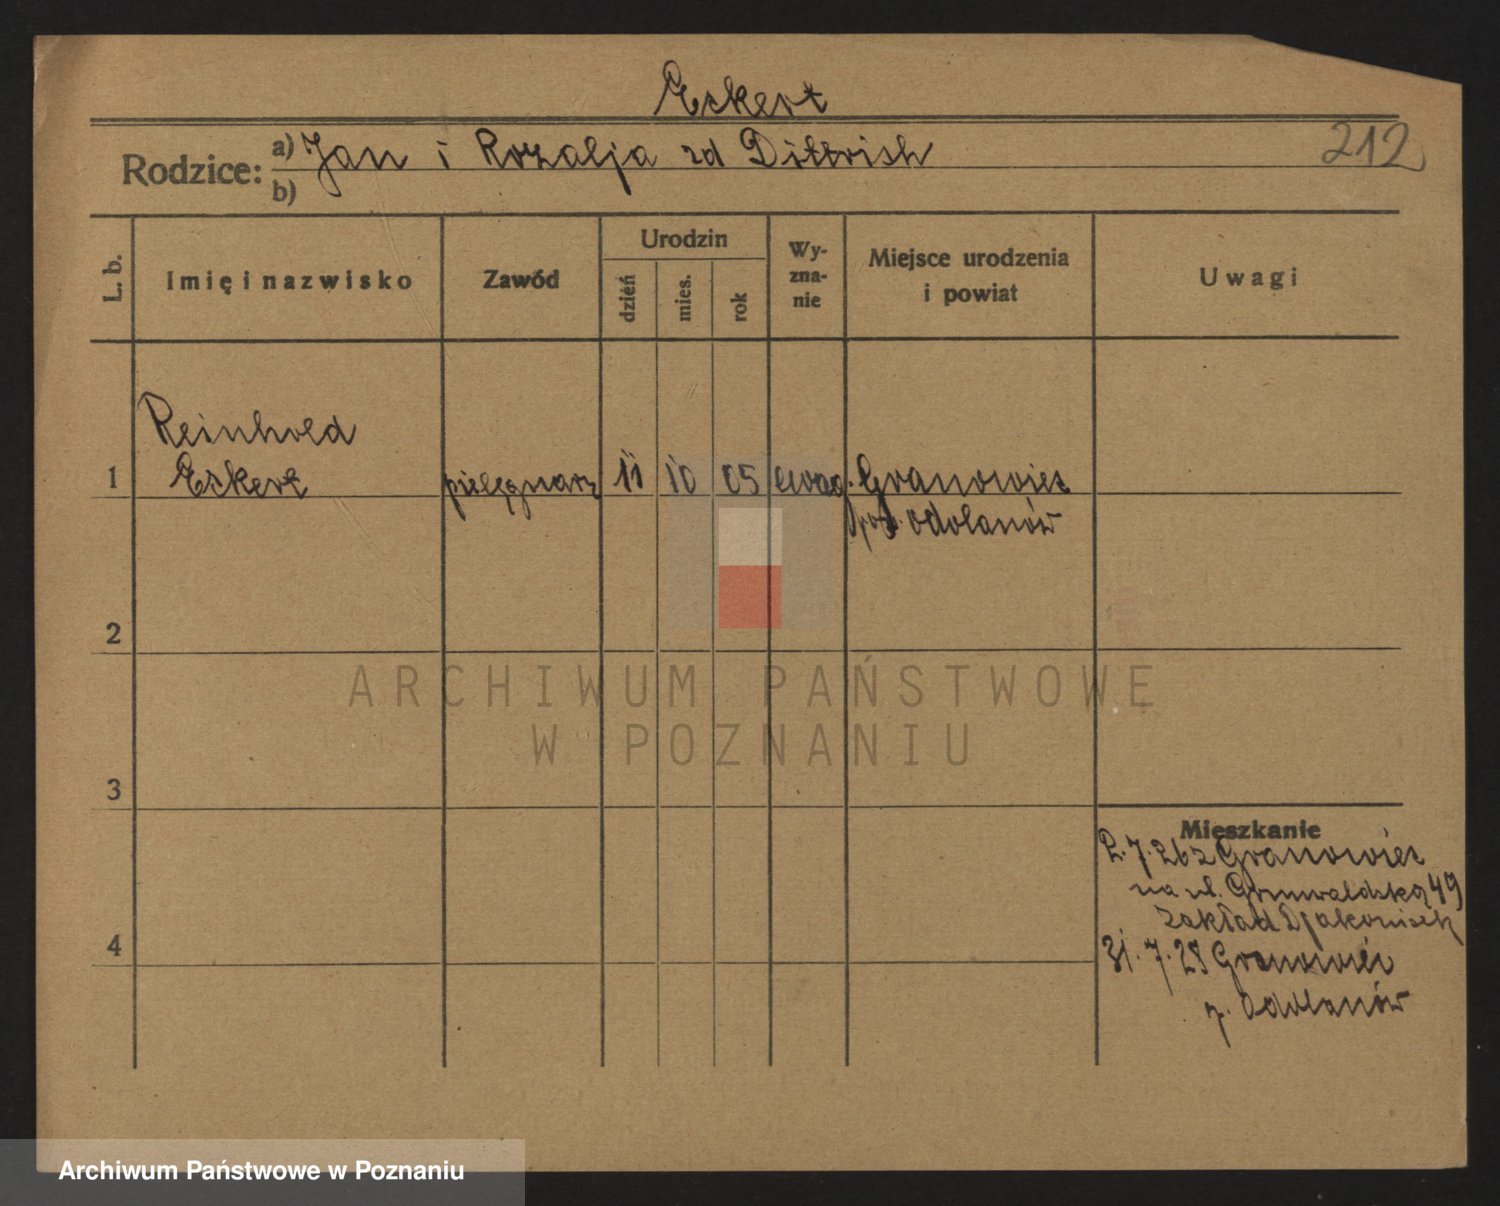 Eckert
212
Rodzice: a) Jan i Rozalja zd Dittrich
b)
L. b.
Imię i nazwisko
Zawód
Urodzin
dzień
mies.
rok
Wy-
zna-
nie
Miejsce urodzenia
i powiat
Uwagi
Reinhold
1 Eckert pielęgniarz 11 10 05 ewag. Granowiec
pow. Odolanów
2
3
4
Mieszkanie
2.7.26 z Granowiec
na ul. Grunwaldzką 49
zakład Djakonisek
31.7.28 Granowiec
p. Odolanów
ARCHIWUM PAŃSTWOWE
W POZNANIU
Archiwum Państwowe w Poznaniu